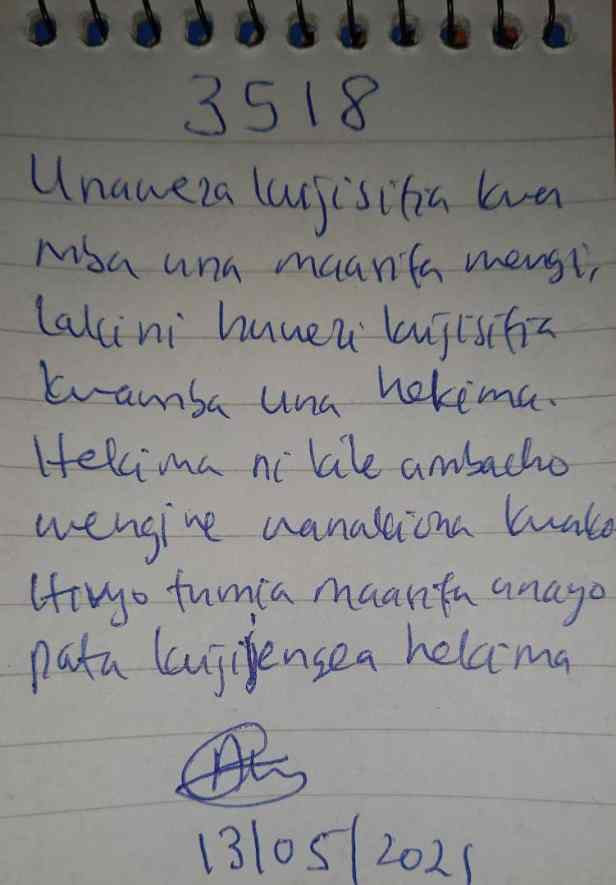 3518
Unaweza kujisifia kwa
mba una maarifa mengi,
lakini huwezi kujisifia
kwamba una hekima.
Hekima ni kile ambacho
wengine wanakiona kwako
Hivyo tumia maarifa unayo
pata kujijengea hekima
13/05/2021